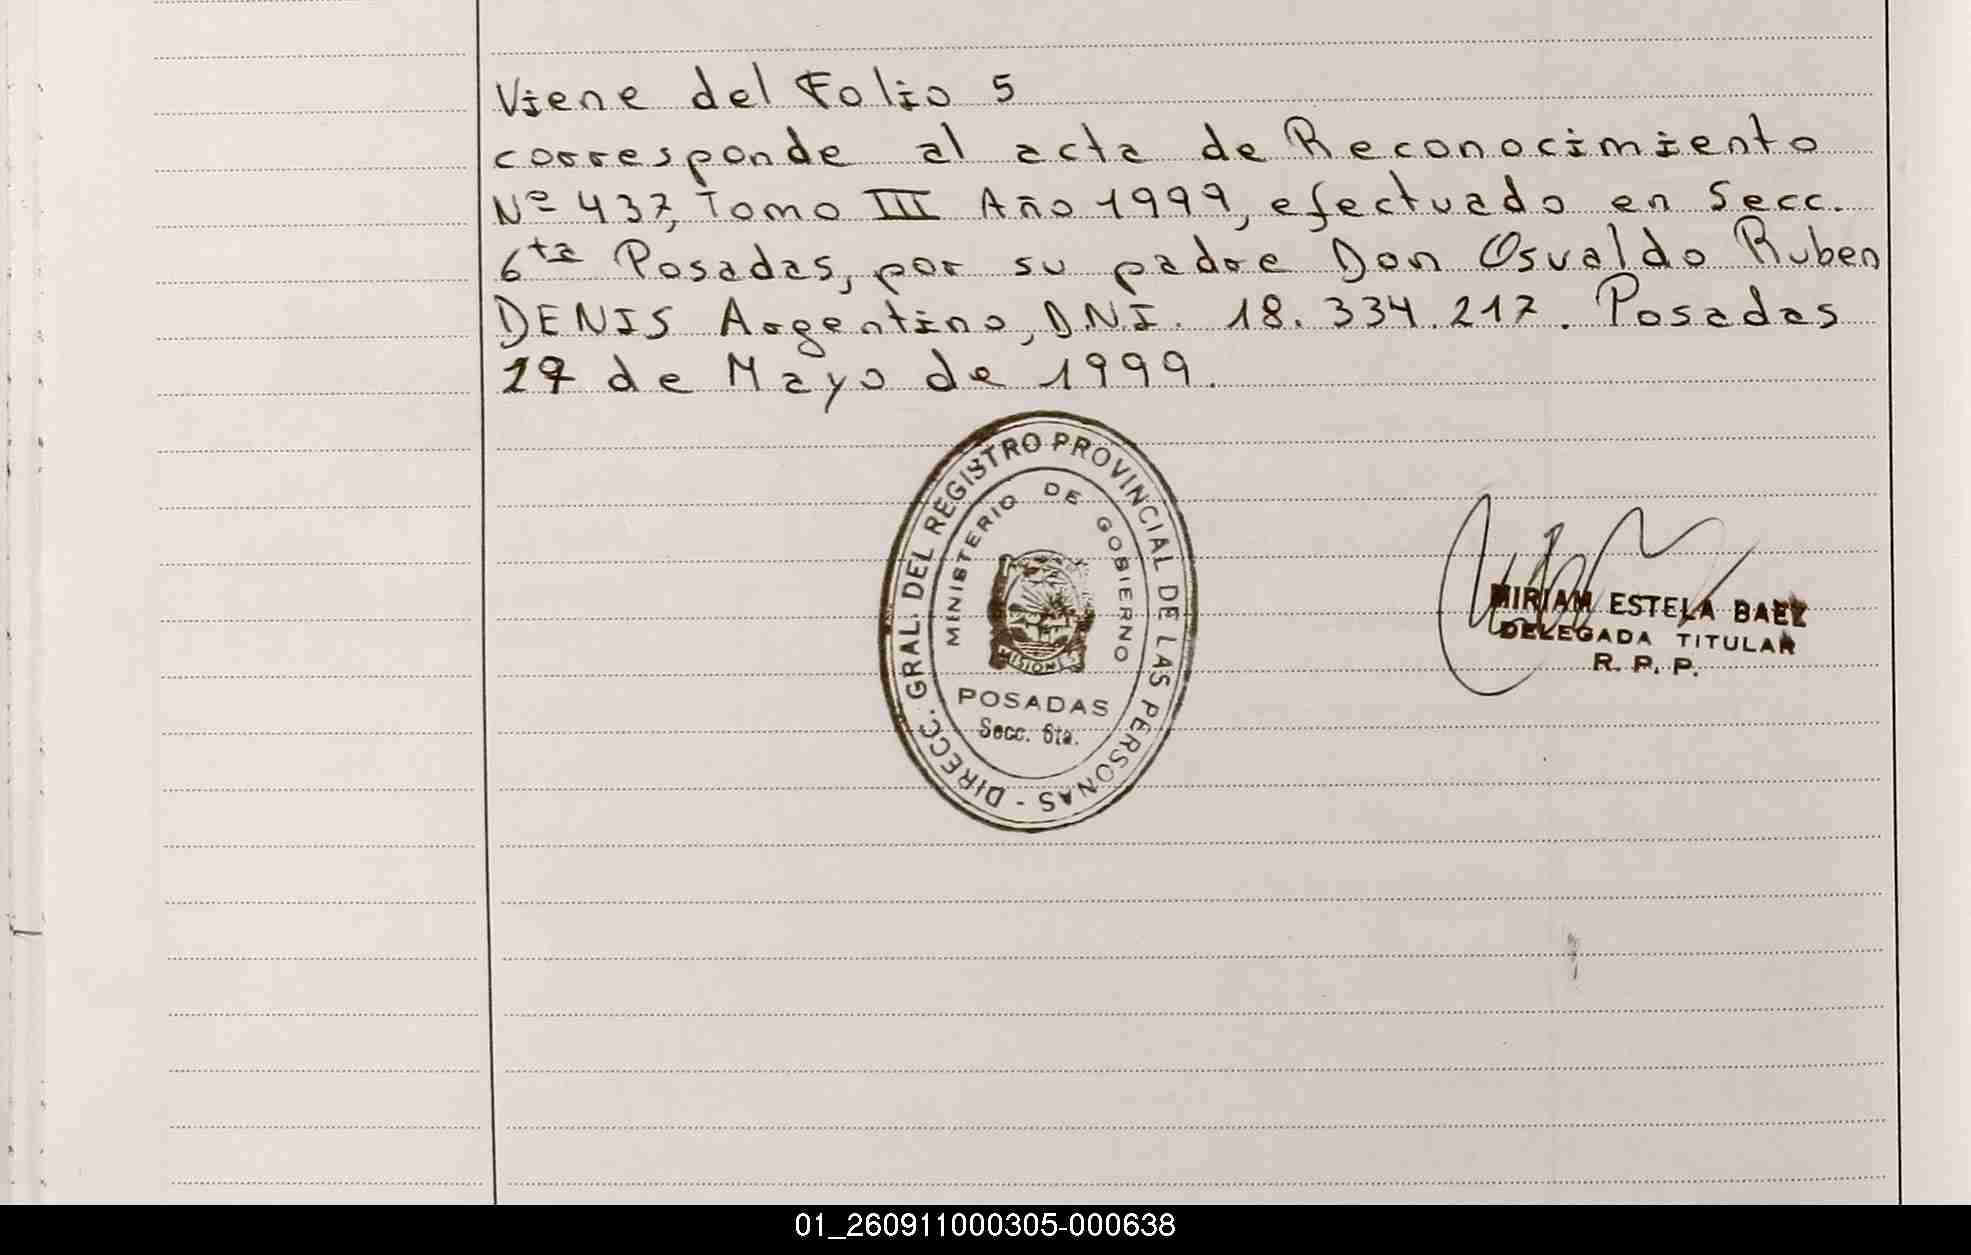 Viene del Folio 5
corresponde al acta de Reconocimiento
Nº 437, Tomo III Año 1999, efectuado en Secc.
6ta Posadas, por su padre Don Osvaldo Ruben
DENIS Argentino, D.N.I. 18.334.217. Posadas
de Mayo de 1999.
DIRECC. GRAL. DEL REGISTRO PROVINCIAL DE LAS PERSONAS -
MINISTERIO DE GOBIERNO
MISIONES
POSADAS
Secc. 6ta.
MIRIAM ESTELA BAEZ
DELEGADA TITULAR
R. P. P.
01_260911000305-000638